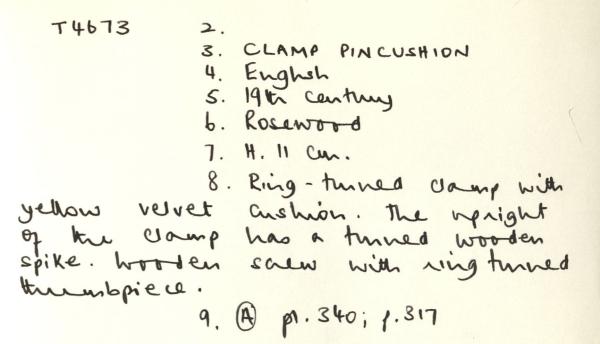 T4673 2.
3. CLAMP PINCUSHION
4. English
5. 19th century
6. Rosewood
7. H. 11 cm.
8. Ring-turned clamp with
yellow velvet cushion. The upright
of the clamp has a turned wooden
spike. Wooden screw with ring turned
thumbpiece.
9. Ⓐ pl. 340; p. 317